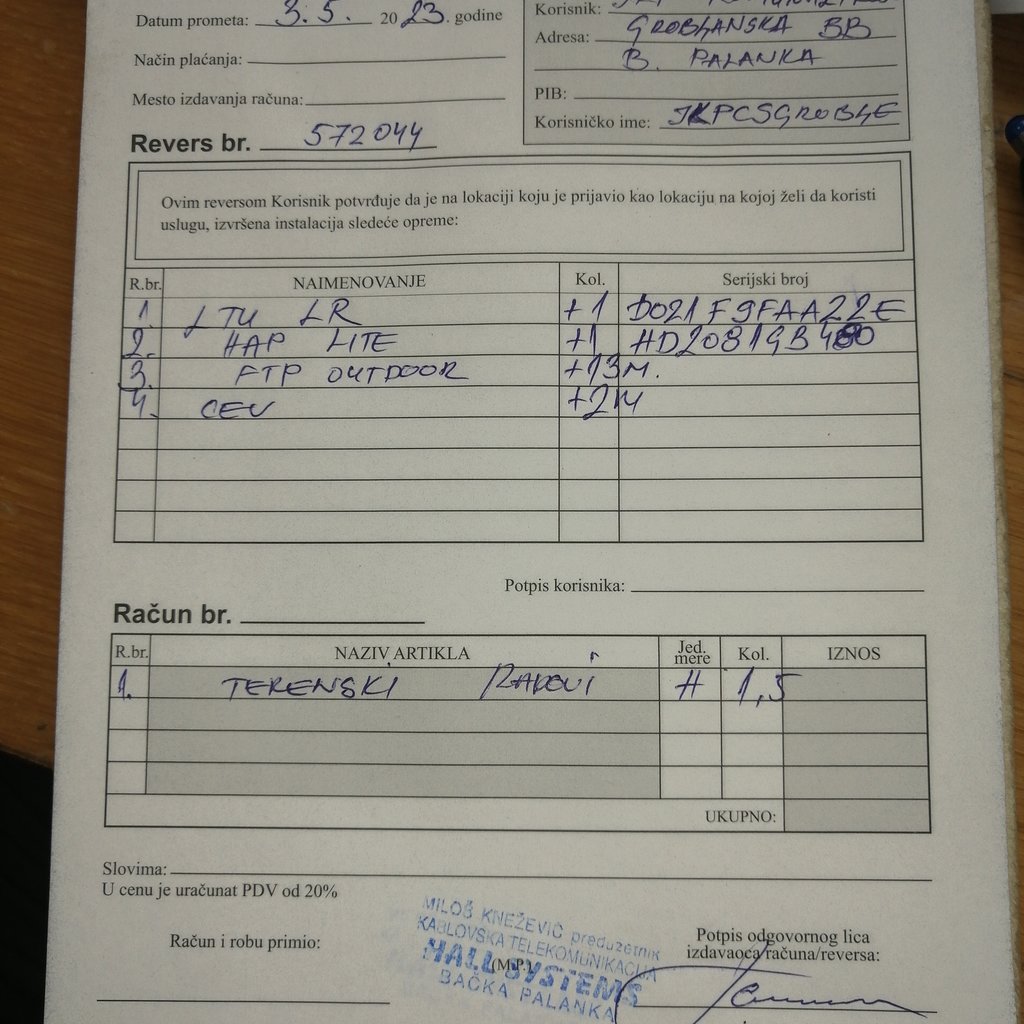 Datum prometa: 3.5. 2023. godine
Način plaćanja:
Mesto izdavanja računa:
Revers br. 572044
Korisnik:
Adresa: GROBLJANSKA BB
B. PALANKA
PIB:
Korisničko ime: JKPCSGROBLJE
Ovim reversom Korisnik potvrđuje da je na lokaciji koju je prijavio kao lokaciju na kojoj želi da koristi
uslugu, izvršena instalacija sledeće opreme:
R.br. NAIMENOVANJE Kol. Serijski broj
1. LTU LR +1 D021F9FAA22E
2. HAP LITE +1 HD2081GB480
3. FTP OUTDOOR +13M.
4. CEV +2M
Potpis korisnika:
Račun br.
R.br. NAZIV ARTIKLA Jed. mere Kol. IZNOS
1. TERENSKI RADOVI H 1,5
UKUPNO:
Slovima:
U cenu je uračunat PDV od 20%
Račun i robu primio:
MILOŠ KNEŽEVIĆ preduzetnik
KABLOVSKA TELEKOMUNIKACIJA
HALL SYSTEMS
BAČKA PALANKA
(M.P.)
Potpis odgovornog lica
izdavaoca računa/reversa: